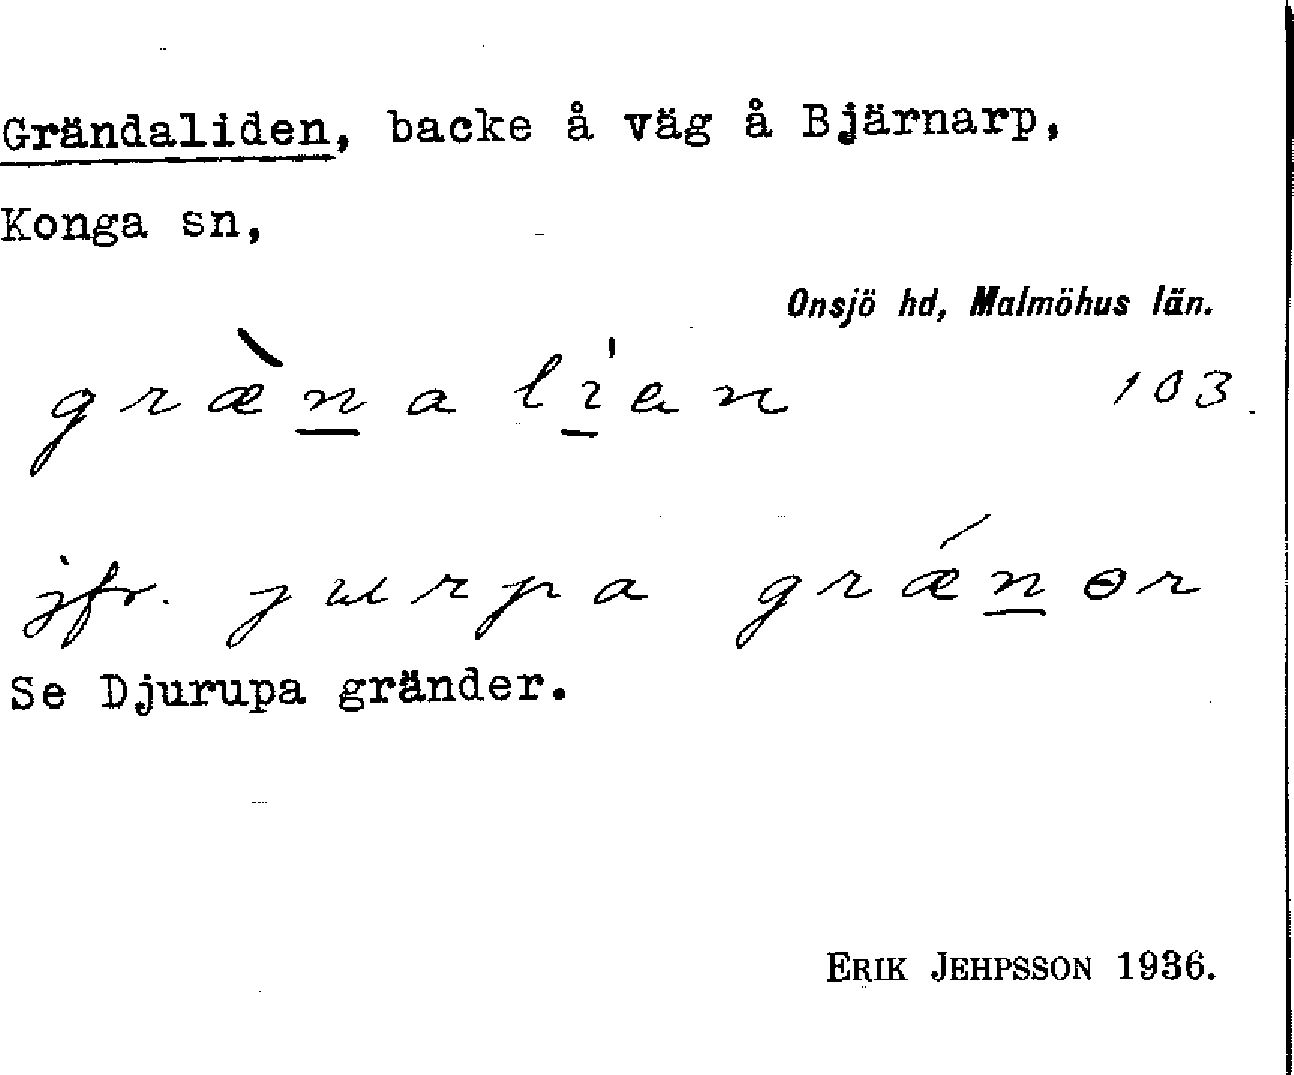 Grändaliden, backe å väg å Bjärnarp,
Konga sn,
Onsjö hd, Malmöhus län.
græ̀n̲a li̲̍an 103.
jfr. jurpa grǽn̲ər
Se Djurupa gränder.
ERIK JEHPSSON 1936.